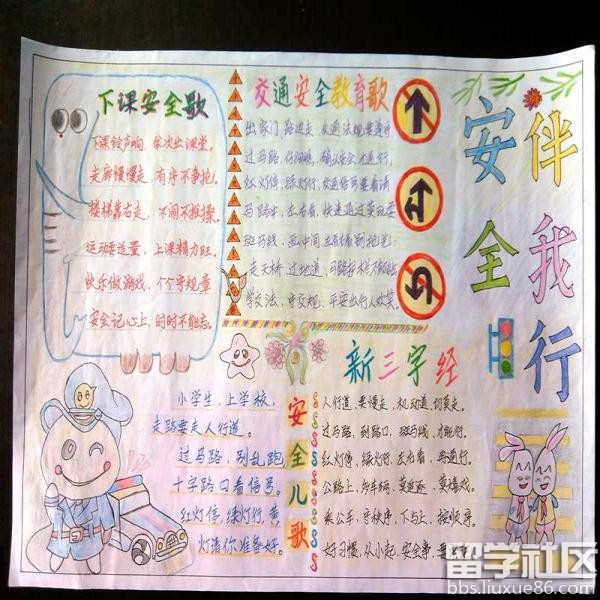 安全
伴我行
下课安全歌
下课铃声响，依次出课堂。
走廊慢慢走，有序不争抢。
楼梯靠右走，不闹不推搡。
运动要适量，上课精力旺。
快乐做游戏，个个守规章
安全记心上，时时不能忘。
交通安全教育歌
出家门 路边走 交通法规要遵守
过马路，仔细瞧，确认安全才通行，
红灯停，绿灯行，交通信号要看清
马路中，左右看，快速通过莫迟
斑马线，
走天桥 过地道，马路
学交法，守交规，平安出行人欢笑。
安全儿歌
小学生，上学校，
走路要走人行道。
过马路，别乱跑
十字路口看信号。
红灯停，绿灯行，黄
灯请你准备好。
新三字经
人行道，要慢走，机动道，切莫走。
过马路，到路口，斑马线，才能行。
红灯停，绿灯行，左右看，再通行。
公路上，多车辆，莫追逐，莫嬉戏。
乘公车，守秩序，下与上，按顺序。
好习惯，从小起，安全事，
留学社区
bbs.liuxue86.com